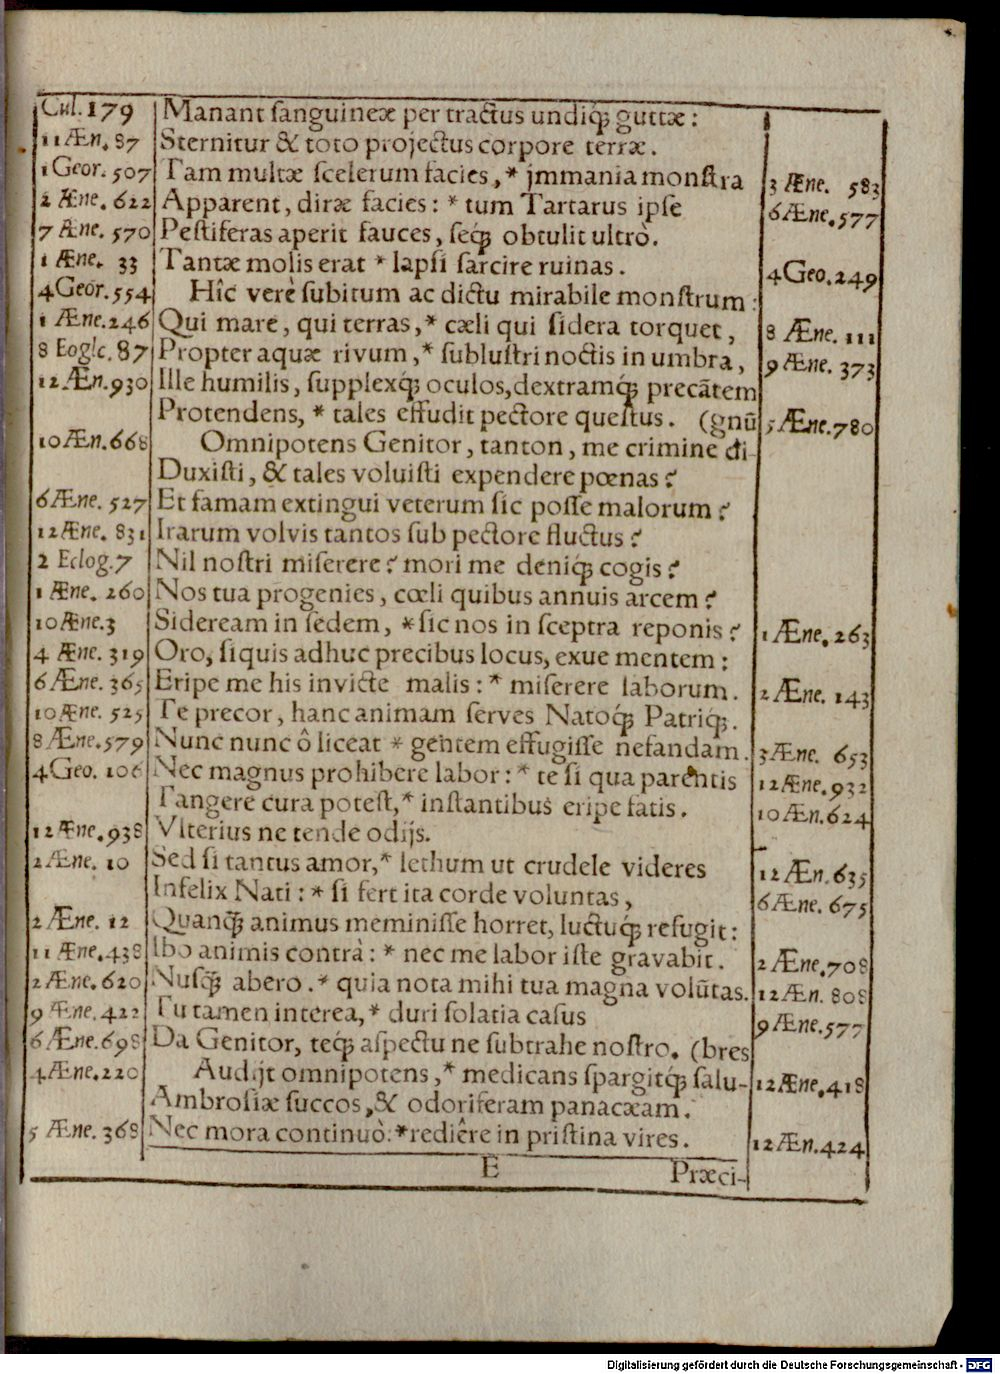 Cul. 179 Manant sanguineæ per tractus undiq; guttæ:
11 Æn. 87 Sternitur & toto projectus corpore terræ.
1 Geor. 507 Tam multæ scelerum facies, * jmmania monstra 3 Æne. 583
2 Æne. 622 Apparent, diræ facies: * tum Tartarus ipse 6 Æne. 577
7 Æne. 570 Pestiferas aperit fauces, seq; obtulit ultrò.
1 Æne. 33 Tantæ molis erat * lapsi sarcire ruinas. 4 Geo. 249
4 Geor. 554 Hîc verè subitum ac dictu mirabile monstrum:
1 Æne. 246 Qui mare, qui terras, * cæli qui sidera torquet, 8 Æne. 111
8 Eoglc. 87 Propter aquæ rivum, * sublustri noctis in umbra, 9 Æne. 373
12 Æn. 930 Ille humilis, supplexq; oculos, dextramq; precātem
Protendens, * tales effudit pectore questus. (gnū 5 Æne. 780
10 Æn. 668 Omnipotens Genitor, tanton, me crimine di-
Duxisti, & tales voluisti expendere pœnas?
6 Æne. 527 Et famam extingui veterum sic posse malorum?
12 Æne. 831 Irarum volvis tantos sub pectore fluctus?
2 Eclog. 7 Nil nostri miserere? mori me deniq; cogis?
1 Æne. 260 Nos tua progenies, cœli quibus annuis arcem?
10 Æne. 3 Sideream in sedem, * sic nos in sceptra reponis? 1 Æne. 263
4 Æne. 319 Oro, siquis adhuc precibus locus, exue mentem:
6 Æne. 365 Eripe me his invicte malis: * miserere laborum. 2 Æne. 143
10 Æne. 525 Te precor, hanc animam serves Natoq; Patriq;.
8 Æne. 579 Nunc nunc ô liceat * gentem effugisse nefandam. 3 Æne. 653
4 Geo. 106 Nec magnus prohibere labor: * te si qua parentis 12 Æne. 932
Tangere cura potest, * instantibus eripe fatis. 10 Æn. 624
12 Æne. 938 Vlterius ne tende odijs.
2 Æne. 10 Sed si tantus amor, * lethum ut crudele videres 12 Æn. 635
Infelix Nati: * si fert ita corde voluntas, 6 Æne. 675
2 Æne. 12 Quanq; animus meminisse horret, luctuq; refugit:
11 Æne. 438 Ibo animis contrà: * nec me labor iste gravabit. 2 Æne. 708
2 Æne. 620 Nusq; abero. * quia nota mihi tua magna volūtas. 12 Æn. 808
9 Æne. 422 Tu tamen interea, * duri solatia casus 9 Æne. 577
6 Æne. 698 Da Genitor, teq; aspectu ne subtrahe nostro. (bres
4 Æne. 220 Audijt omnipotens, * medicans spargitq; salu- 12 Æne. 418
Ambrosiæ succos, & odoriferam panacæam.
5 Æne. 368 Nec mora continuò: * rediêre in pristina vires. 12 Æn. 424
E Præci-
Digitalisierung gefördert durch die Deutsche Forschungsgemeinschaft - DFG